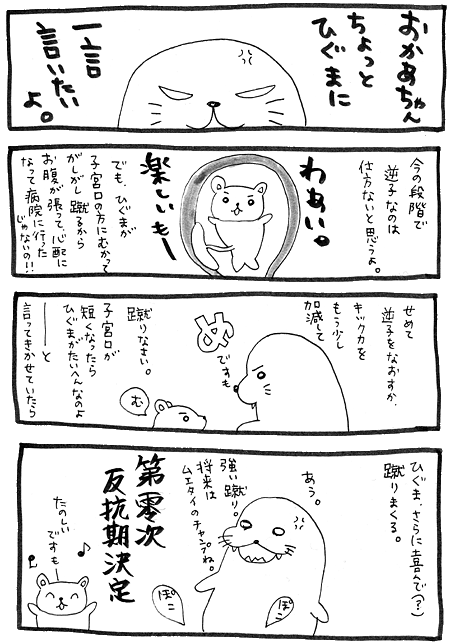 おかあちゃん
ちょっと
ひぐまに
一言
言いたい
よ。
今の段階で
逆子なのは
仕方ないと思うよ。
わあい。
楽しいもー
でも、ひぐまが
子宮口の方にむかって
がしがし蹴るから
お腹が張って、心配に
なって病院に行った
じゃないの!!
せめて
逆子をなおすか、
キックカを
もう少し
加減して
蹴りなさい。
子宮口が
短くなったら
ひぐまがたいへんなのよ
――と
言ってきかせていたら
め
ですも
む
ひぐま、さらに喜んで(?)
蹴りまくる。
あう。
強い蹴り。
将来は
ムエタイのチャンプね。
ぽこ
ぽこ
第零次
反抗期決定
たのしい
ですも